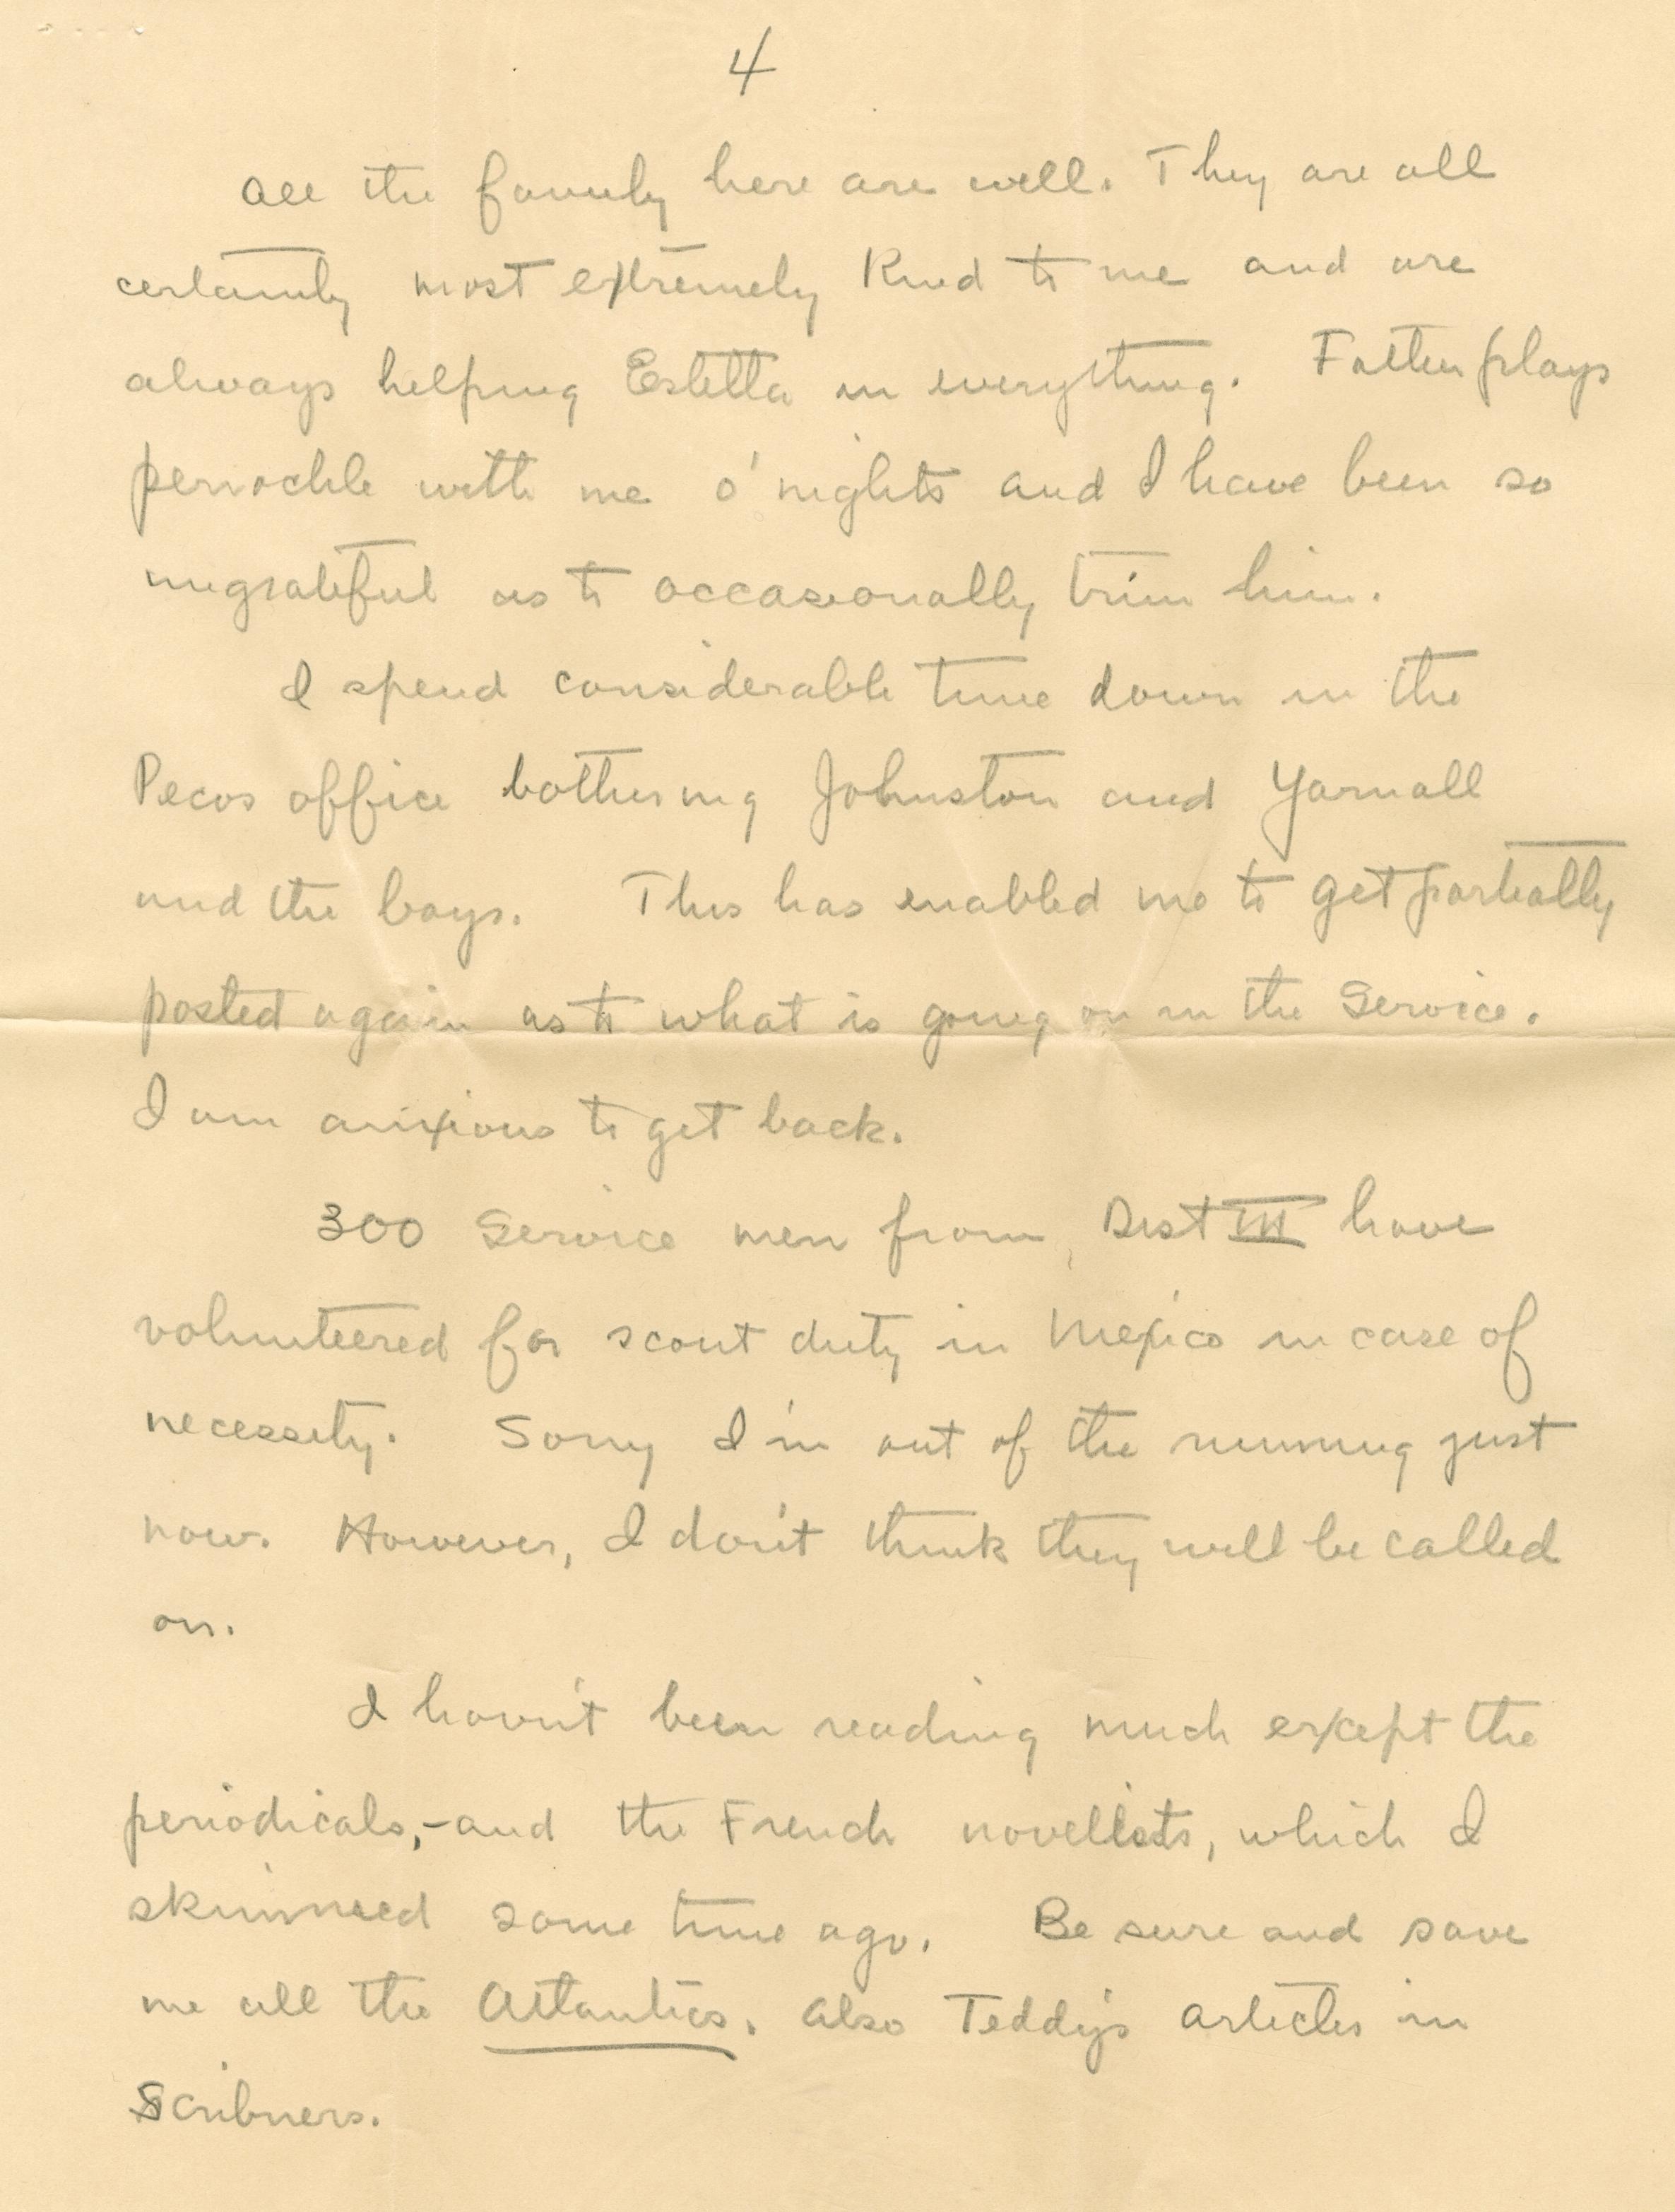 4
All the family here are well. They are all
certainly most extremely kind to me and are
always helping Estella in everything. Father plays
penochle with me o'nights and I have been so
ungrateful as to occasionally trim him.
I spend considerable time down in the
Pecos office bothering Johnston and Yarnall
and the boys. This has enabled me to get partially
posted again as to what is going on in the Service.
I am anxious to get back.
300 Service men from Dist III have
volunteered for scout duty in Mexico in case of
necessity. Sorry I'm out of the running just
now. However, I don't think they will be called
on.
I havn't been reading much except the
periodicals,-and the French novelists, which I
skimmed some time ago. Be sure and save
me all the Atlantics. Also Teddy's articles in
Scribners.